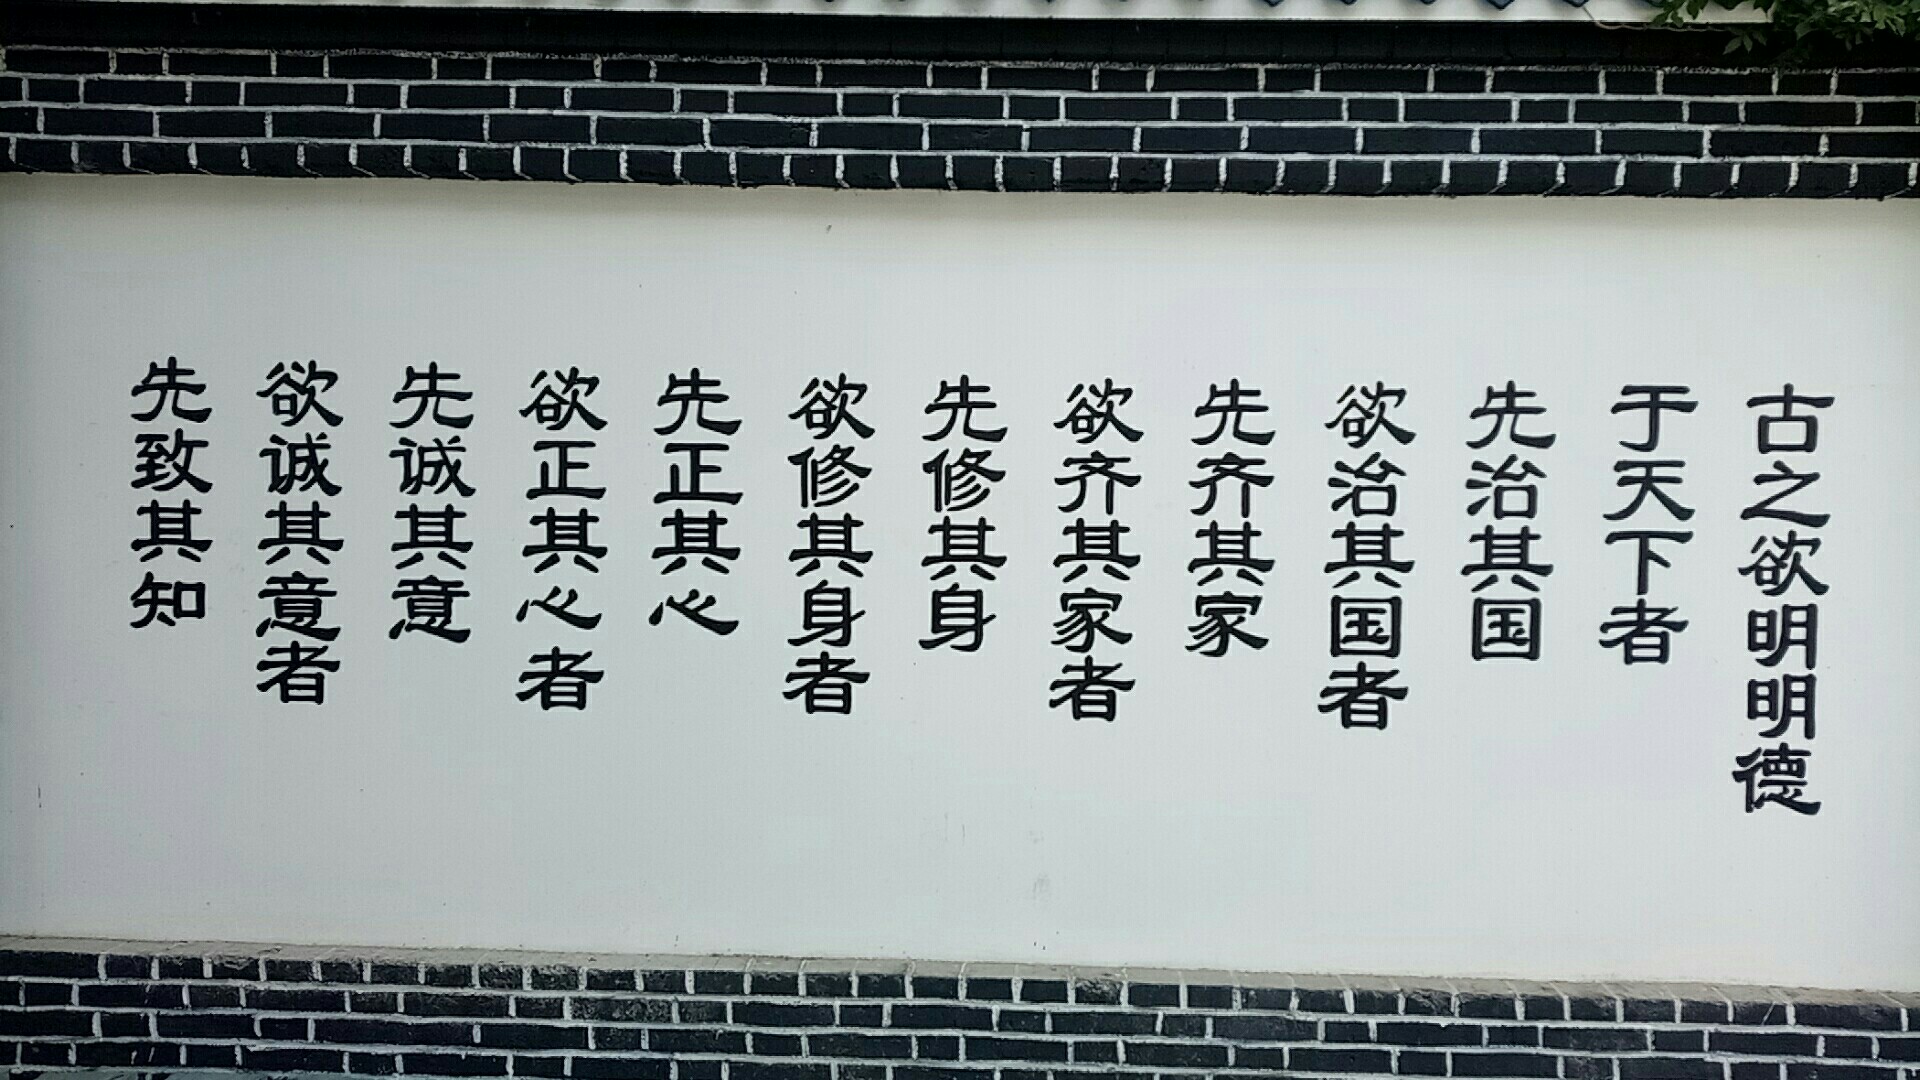 古之欲明明德
于天下者
先治其国
欲治其国者
先齐其家
欲齐其家者
先修其身
欲修其身者
先正其心
欲正其心者
先诚其意
欲诚其意者
先致其知